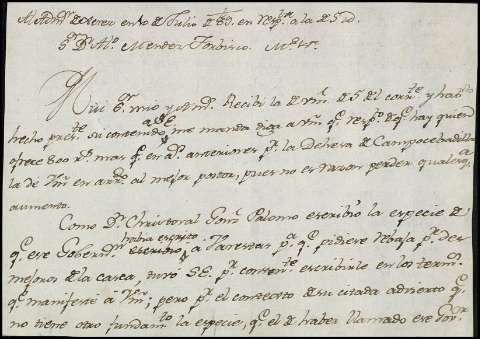 Al Adm.r de Xerez en 10 de Julio de 89. en resp.ta a la de 5 id.
S.r D.n Al.o Mendez Torbisco. M.s S.s
Mui S.r mio y Am.o Recibí la de Vm. de 5 del corr.te y hab.do
hecho pres.te su contenido a SE. me manda diga a vm q.e resp.o de q.e hay quien
ofrece 800 r.s mas q.e en años anteriores p.r la Dehesa de Campocebadilla
la dé Vm en arr.to al mejor postor, pues no es razon perder qualesq.a
aumento.
Como D.n Christoval Gonz. Palomo escribió la especie de
q.e ese Gobern.r havia escrito a Parestas p.a q.e pidiese rebaja p.r des
mejoras de la casa, tuvo SE. p.r conven.te escribirle en los term.s
q.e manifesté a Vm; pero p.r el contexto de su citada advierto q.e
no tiene otro fundam.to la especie, q.e el de haber llamado ese Gov.r